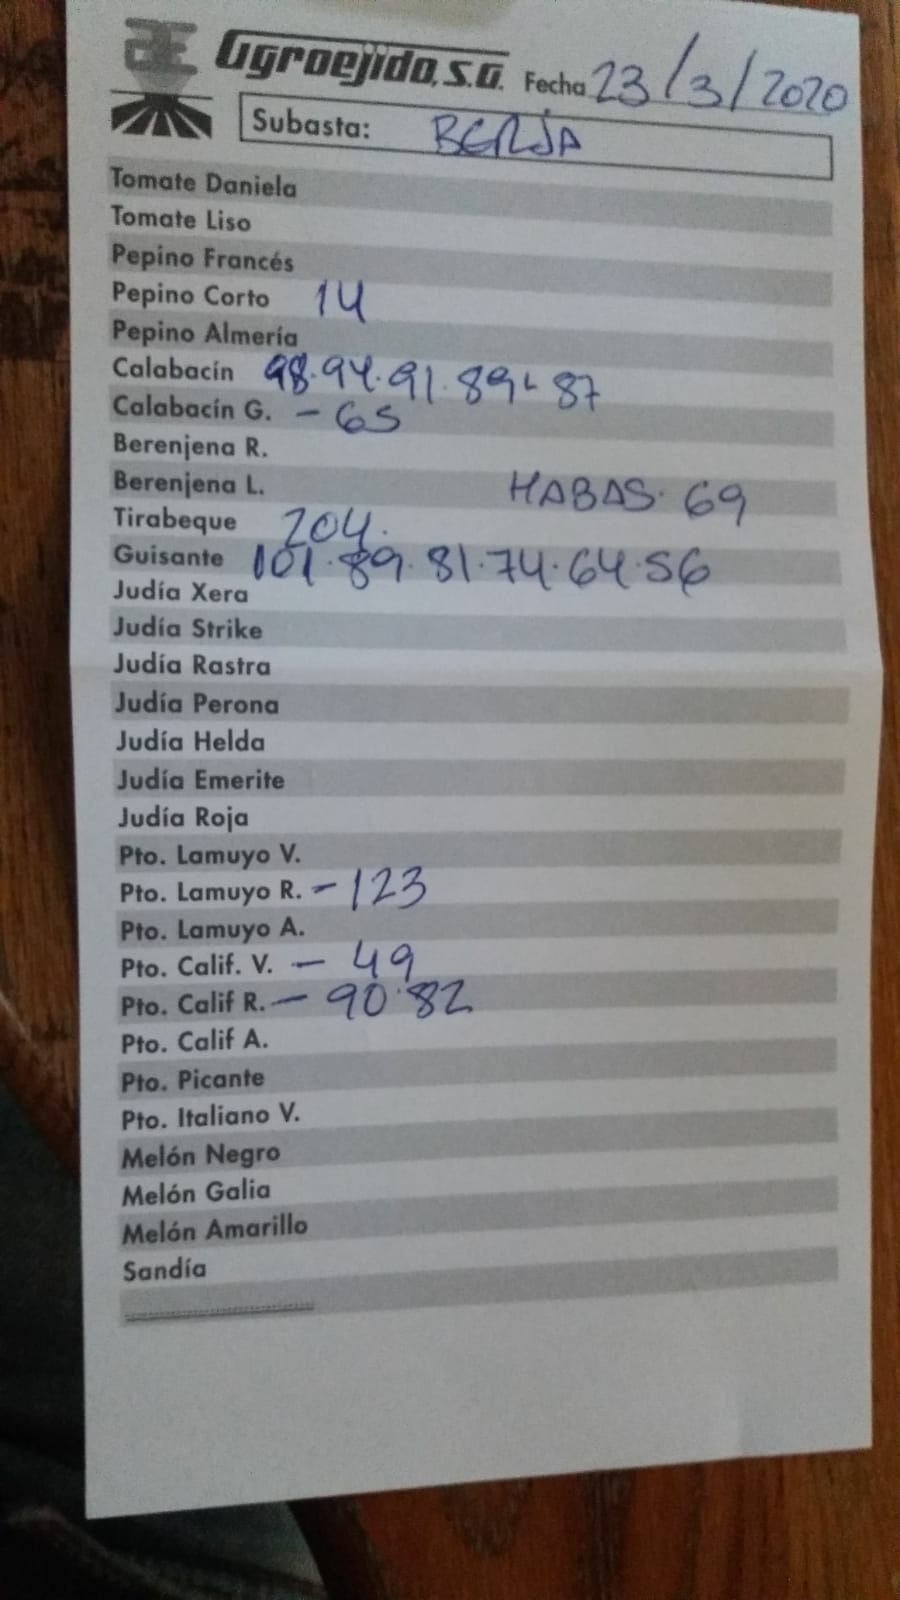 Agroejido, S.A. Fecha 23/3/2020
Subasta: BERJA
Tomate Daniela
Tomate Liso
Pepino Francés
Pepino Corto 14
Pepino Almería
Calabacín 98.94.91.89-87
Calabacín G. - 65
Berenjena R.
Berenjena L. HABAS. 69
Tirabeque 204.
Guisante 101.89.81.74.64.56
Judía Xera
Judía Strike
Judía Rastra
Judía Perona
Judía Helda
Judía Emerite
Judía Roja
Pto. Lamuyo V.
Pto. Lamuyo R. - 123
Pto. Lamuyo A.
Pto. Calif. V. - 49
Pto. Calif R. - 90.82
Pto. Calif A.
Pto. Picante
Pto. Italiano V.
Melón Negro
Melón Galia
Melón Amarillo
Sandía